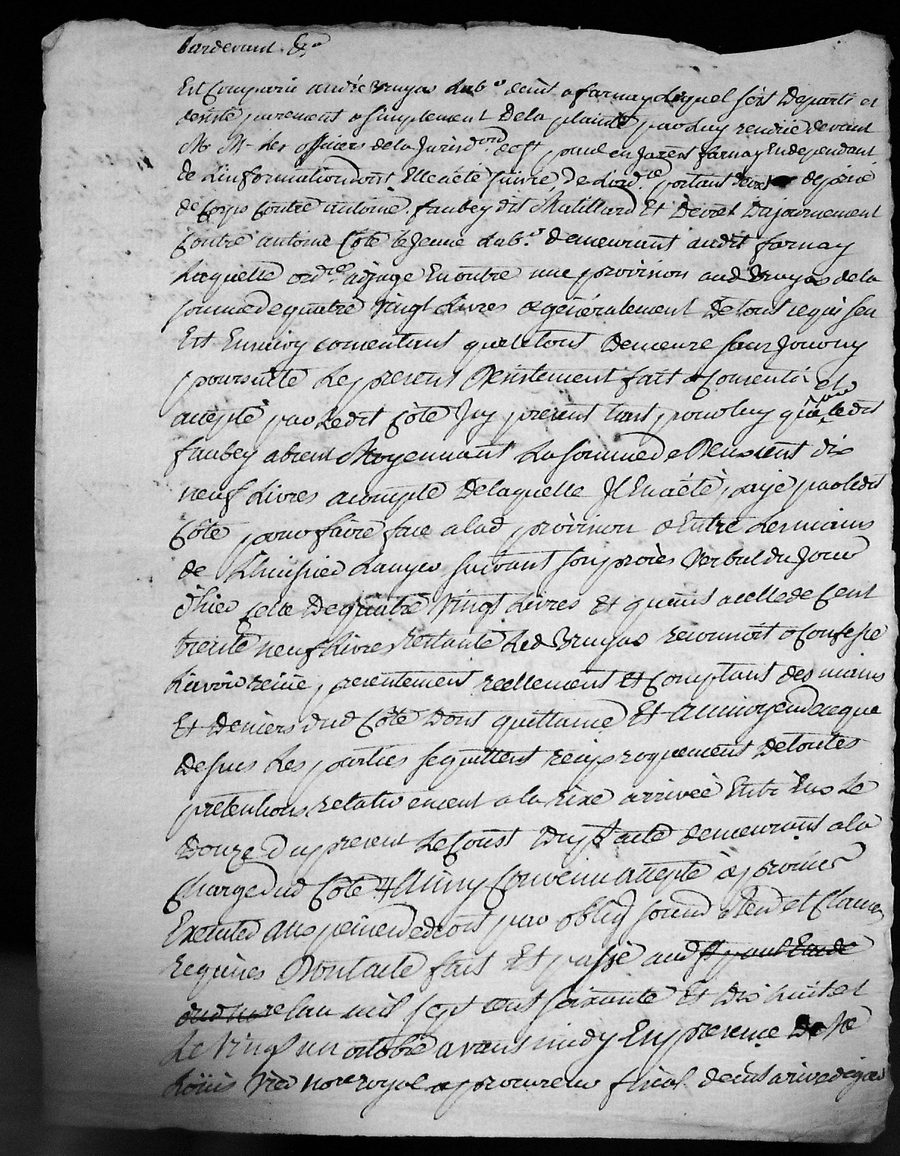 Pardevant &a
Est Comparu andré Bruyas Lab.r demt a farnay Lequel sest Departi et
desisté purement & simplement De la plainte par Luy rendue devant
Mr Mrs Les officiers de la Jurisd.on de st paul en Jarest farnay Independant
de L'information dont Elle a été suivie, De L'ord.ce portant decret de prise
de Corps Contre antoine faubey dit Matillard Et Decret Dajournement
Contre antoine Côte le Jeune Lab.r demeurant audit farnay
Laquelle ord.ce adjuge En outre une provision aud Bruyas de la
somme de quatre Vingt Livres & generalement De tout ce qui sen
Est Ensuivy consentant que le tout Demeure sans Jouony
poursuitte Le present Desistement fait & Consenti et
accepté par Ledit Côte Icy present tant pour luy que pour le dit
faubey absent Moyennant La somme de Deux cent dix
neuf Livres a compte De laquelle Il En a été payé par ledit
Côte pour faire face a lad provision & Entre Les mains
de L'huissier Lanyer suivant son procès Verbal du Jour
d'hier celle De quatre Vingt Livres Et quant a celle de Cent
trente neuf Livres Restante Led Bruyas reconnoit & Confesse
L'avoir reçue presentement reellement Et Comptant des mains
Et Deniers dud Côte Dont quittance Et au moyen de ce que
dessus Les parties se quittent reciproquement De toutes
pretentions Relativement a la rixe arrivée Entre Eux Le
Douze Du present Le Coust Du pnt acte demeurant a la
Charge dud Côte Ainsy Convenu accepté & promis
Executer aux peines de droit par oblig soumis Ren et Claus
Requises Dont acte fait Et passé aud st paul Etude
dud nore Lan mil sept cent soixante Et Dix huit et
Le Vingt un octobre avant midy En presence De Sr
Loüis Vier nore royal & procureur fiscal demt a rivedegier